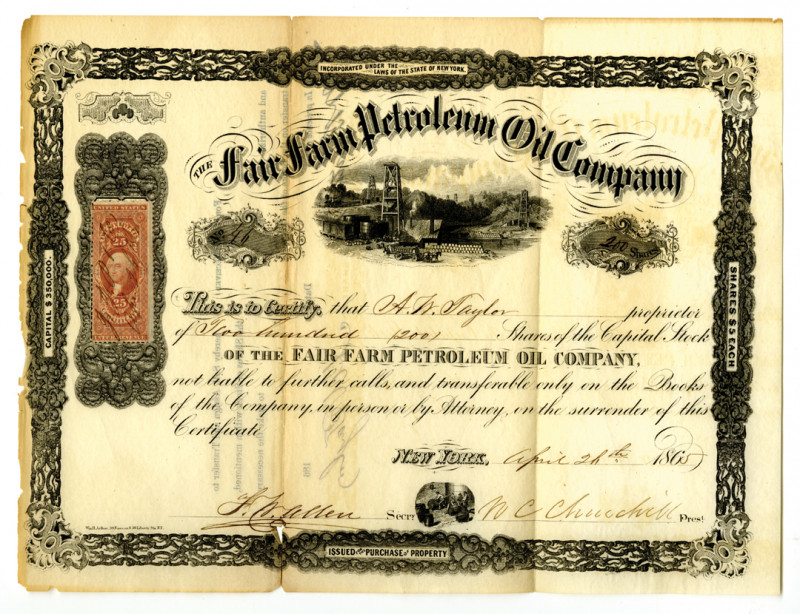 INCORPORATED UNDER THE
LAWS OF THE STATE OF NEW YORK.
THE Fair Farm Petroleum Oil Company
No 200 Shares
UNITED STATES
25
25
CAPITAL $350,000.
SHARES $5 EACH
This is to Certify, that A. W. Taylor proprietor
of Two hundred (200) Shares of the Capital Stock
OF THE FAIR FARM PETROLEUM OIL COMPANY,
not liable to further calls, and transferable only on the Books
of the Company, in person or by Attorney, on the surrender of this
Certificate.
NEW YORK, April 26th 1865
Secy. W C Churchill Prest.
ISSUED FOR PURCHASE OF PROPERTY